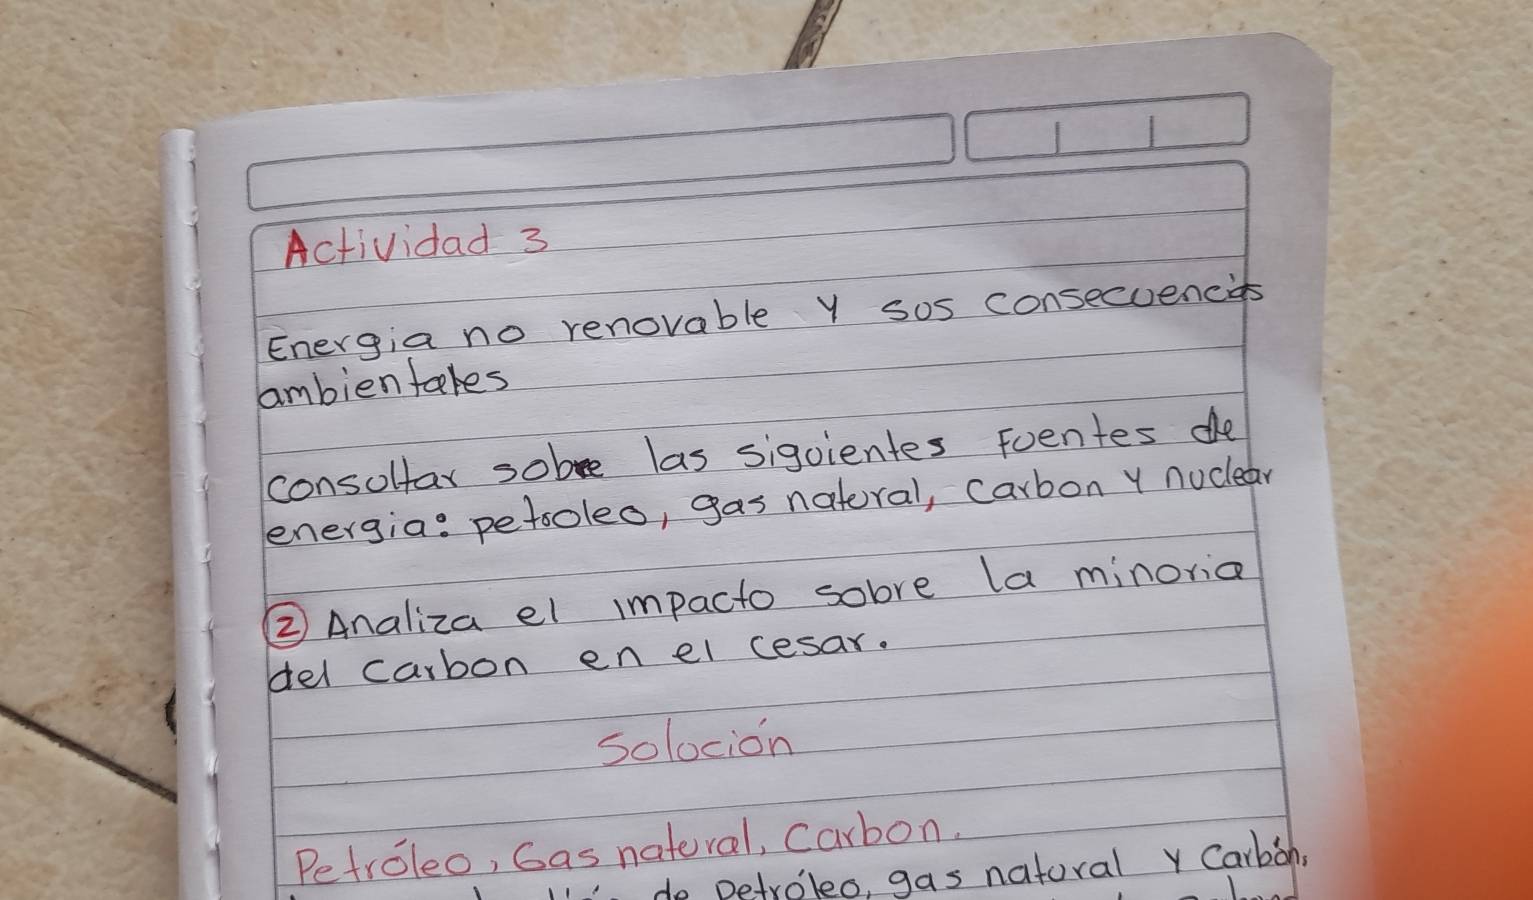 Actividad 3
Energia no renovable y sus consecuencias
ambientales
consultar sobre las siguientes Fuentes de
energia: petroleo, gas natural, carbon y nuclear
② Analiza el impacto sobre la minoria
del carbon en el cesar.
Solución
Petróleo, Gas natural, carbon.
de petróleo, gas natural y carbón,